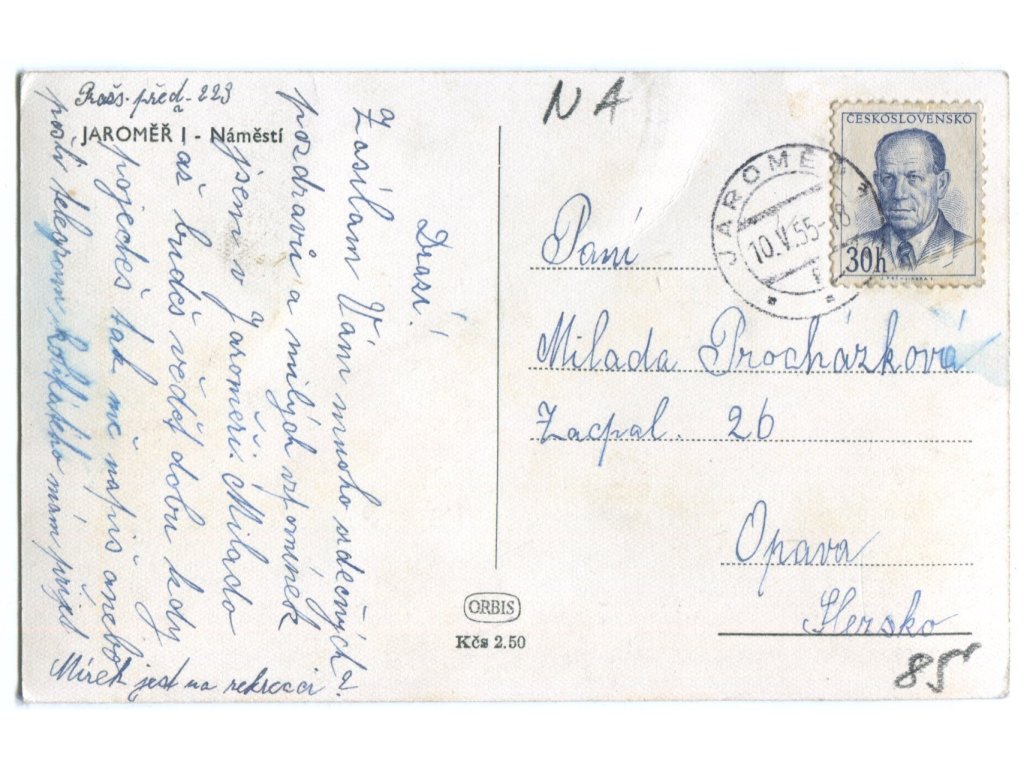 Prošs. před. 223
JAROMĚŘ I - Náměstí
Drazí!
Zasílám Vám mnoho srdečných
pozdravů a milých vzpomínek
jsem v Jaroměři. Milado
až budeš vědět dobu kdy
pojedeš tak mě napiš anebo
pošli telegram kolikátého mám přijed
Mírek jest na rekreaci
ORBIS
Kčs 2.50
NA
ČESKOSLOVENSKO
30h
JAROMĚŘ
10.V.55-18
Paní
Milada Procházková
Zacpal. 26
Opava
Slezsko
85